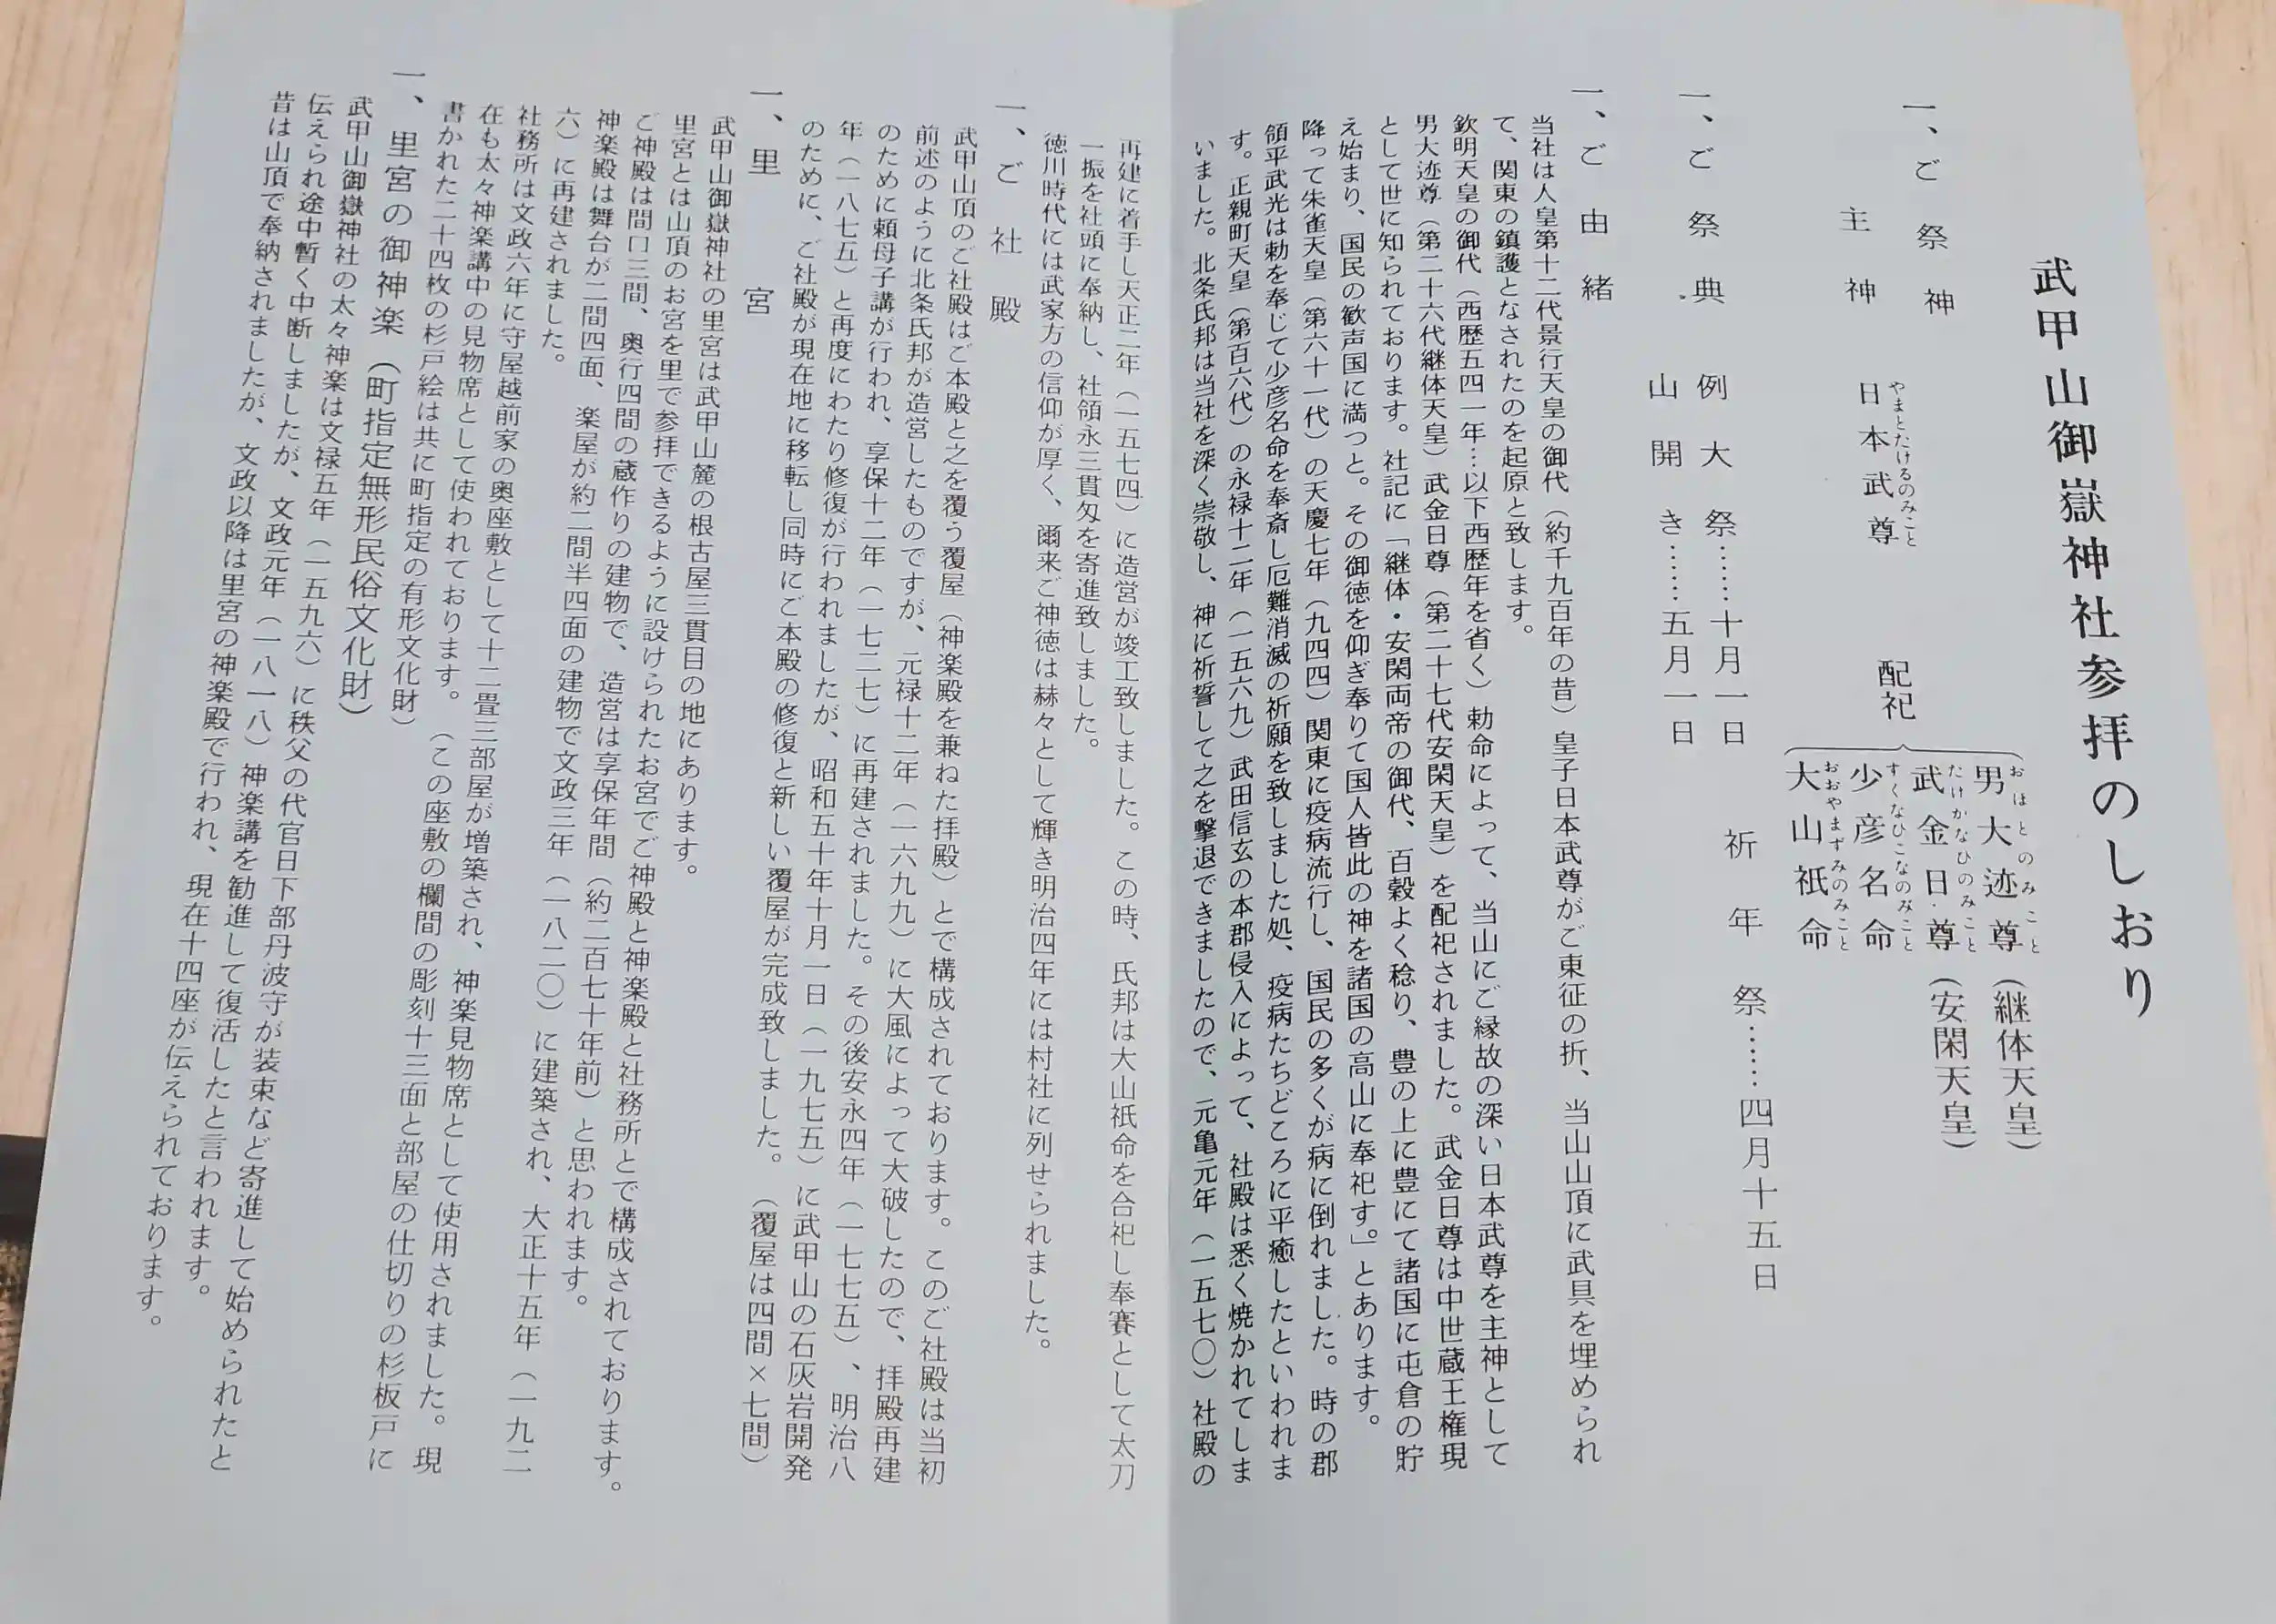 武甲山御嶽神社参拝のしおり
一、ご祭神
主神 日本武尊 配祀
やまとたけるのみこと
男大迹尊（継体天皇）
おほとのみこと
武金日尊（安閑天皇）
たけかなひのみこと
少彦名命
すくなひこなのみこと
大山祇命
おおやまずみのみこと
一、ご祭典 例大祭……十月一日 祈年祭……四月十五日
山開き……五月一日
一、ご由緒
当社は人皇第十二代景行天皇の御代（約千九百年の昔）皇子日本武尊がご東征の折、当山山頂に武具を埋められ
て、関東の鎮護となされたのを起原と致します。
欽明天皇の御代（西歴五四一年…以下西歴年を省く）勅命によって、当山にご縁故の深い日本武尊を主神として
男大迹尊（第二十六代継体天皇）武金日尊（第二十七代安閑天皇）を配祀されました。武金日尊は中世蔵王権現
として世に知られております。社記に「継体・安閑両帝の御代、百穀よく稔り、豊の上に豊にて諸国に屯倉の貯
え始まり、国民の歓声国に満つと。その御徳を仰ぎ奉りて国人皆此の神を諸国の高山に奉祀す。」とあります。
降って朱雀天皇（第六十一代）の天慶七年（九四四）関東に疫病流行し、国民の多くが病に倒れました。時の郡
領平武光は勅を奉じて少彦名命を奉斎し厄難消滅の祈願を致しました処、疫病たちどころに平癒したといわれま
す。正親町天皇（第百六代）の永禄十二年（一五六九）武田信玄の本郡侵入によって、社殿は悉く焼かれてしま
いました。北条氏邦は当社を深く崇敬し、神に祈誓して之を撃退できましたので、元亀元年（一五七〇）社殿の
再建に着手し天正二年（一五七四）に造営が竣工致しました。この時、氏邦は大山祇命を合祀し奉賽として太刀
一振を社頭に奉納し、社領永三貫匁を寄進致しました。
徳川時代には武家方の信仰が厚く、爾来ご神徳は赫々として輝き明治四年には村社に列せられました。
一、ご社殿
武甲山頂のご社殿はご本殿と之を覆う覆屋（神楽殿を兼ねた拝殿）とで構成されております。このご社殿は当初
前述のように北条氏邦が造営したものですが、元禄十二年（一六九九）に大風によって大破したので、拝殿再建
のために頼母子講が行われ、享保十二年（一七二七）に再建されました。その後安永四年（一七七五）、明治八
年（一八七五）と再度にわたり修復が行われましたが、昭和五十年十月一日（一九七五）に武甲山の石灰岩開発
のために、ご社殿が現在地に移転し同時にご本殿の修復と新しい覆屋が完成致しました。（覆屋は四間×七間）
一、里宮
武甲山御嶽神社の里宮は武甲山麓の根古屋三貫目の地にあります。
里宮とは山頂のお宮を里で参拝できるように設けられたお宮でご神殿と神楽殿と社務所とで構成されております。
ご神殿は間口三間、奥行四間の蔵作りの建物で、造営は享保年間（約二百七十年前）と思われます。
神楽殿は舞台が二間四面、楽屋が約二間半四面の建物で文政三年（一八二〇）に建築され、大正十五年（一九二
六）に再建されました。
社務所は文政六年に守屋越前家の奥座敷として十二畳三部屋が増築され、神楽見物席として使用されました。現
在も太々神楽講中の見物席として使われております。（この座敷の欄間の彫刻十三面と部屋の仕切りの杉板戸に
書かれた二十四枚の杉戸絵は共に町指定の有形文化財）
一、里宮の御神楽（町指定無形民俗文化財）
武甲山御嶽神社の太々神楽は文禄五年（一五九六）に秩父の代官日下部丹波守が装束など寄進して始められたと
伝えられ途中暫く中断しましたが、文政元年（一八一八）神楽講を勧進して復活したと言われます。
昔は山頂で奉納されましたが、文政以降は里宮の神楽殿で行われ、現在十四座が伝えられております。